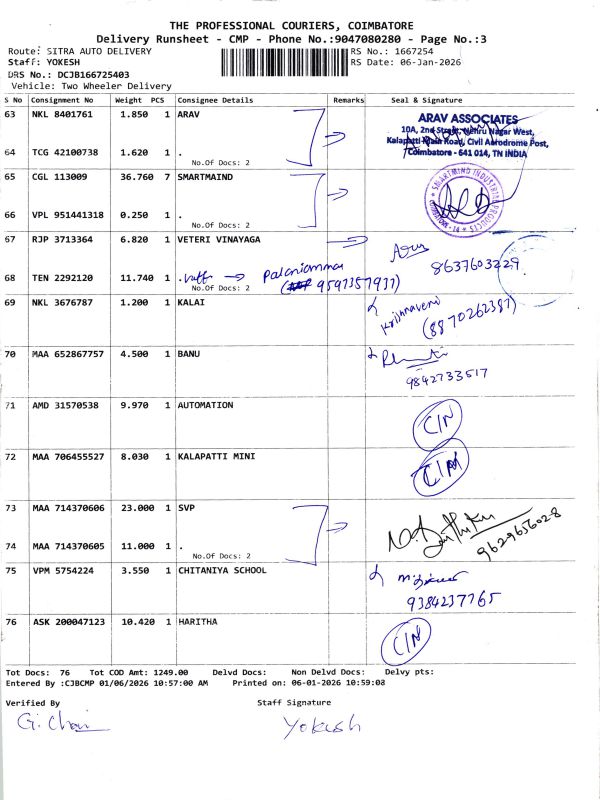 THE PROFESSIONAL COURIERS, COIMBATORE
Delivery Runsheet - CMP - Phone No.:9047080280 - Page No.:3
Route: SITRA AUTO DELIVERY
RS No.: 1667254
Staff: YOKESH
RS Date: 06-Jan-2026
DRS No.: DCJB166725403
Vehicle: Two Wheeler Delivery
S No Consignment No Weight PCS Consignee Details Remarks Seal & Signature
63 NKL 8401761 1.850 1 ARAV
ARAV ASSOCIATES
10A, 2nd Street, Nehru Nagar West,
Kalapatti Main Road, Civil Aerodrome Post,
Coimbatore - 641 014, TN INDIA
64 TCG 42100738 1.620 1 .
No.Of Docs: 2
65 CGL 113009 36.760 7 SMARTMAIND
SMARTMIND INDUSTRIAL PRODUCTS
COIMBATORE - 14
66 VPL 951441318 0.250 1 .
No.Of Docs: 2
67 RJP 3713364 6.820 1 VETERI VINAYAGA
8637603229
68 TEN 2292120 11.740 1 .
Palaniammal
No.Of Docs: 2
9597357937
69 NKL 3676787 1.200 1 KALAI
Krishnaveni
(8870262387)
70 MAA 652867757 4.500 1 BANU
9842733517
71 AMD 31570538 9.970 1 AUTOMATION
C/N
72 MAA 706455527 8.030 1 KALAPATTI MINI
C/N
73 MAA 714370606 23.000 1 SVP
9629656028
74 MAA 714370605 11.000 1 .
No.Of Docs: 2
75 VPM 5754224 3.550 1 CHITANIYA SCHOOL
9384237765
76 ASK 200047123 10.420 1 HARITHA
C/N
Tot Docs: 76 Tot COD Amt: 1249.00 Delvd Docs: Non Delvd Docs: Delvy pts:
Entered By :CJBCMP 01/06/2026 10:57:00 AM Printed on: 06-01-2026 10:59:08
Verified By Staff Signature
Yokesh